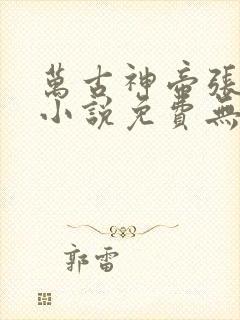 萬古神帝張
小説免費無
郭雷